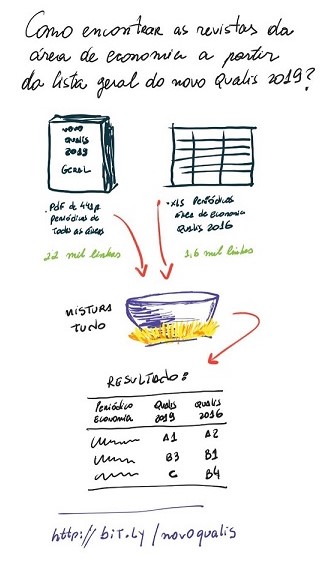 Como encontrar as revistas da
área de economia a partir
da lista geral do novo Qualis 2019?
NOVO
QUALIS
2019
GERAL
.Pdf de 441p
Periódicos de
todas as áreas
22 mil linhas
.xls Periódicos
área de Economia
Qualis 2016
1,6 mil linhas
MISTURA
TUDO
RESULTADO:
Periódico Qualis Qualis
Economia 2019 2016
A1 A2
B3 B1
C B4
http://bit.ly/novoqualis